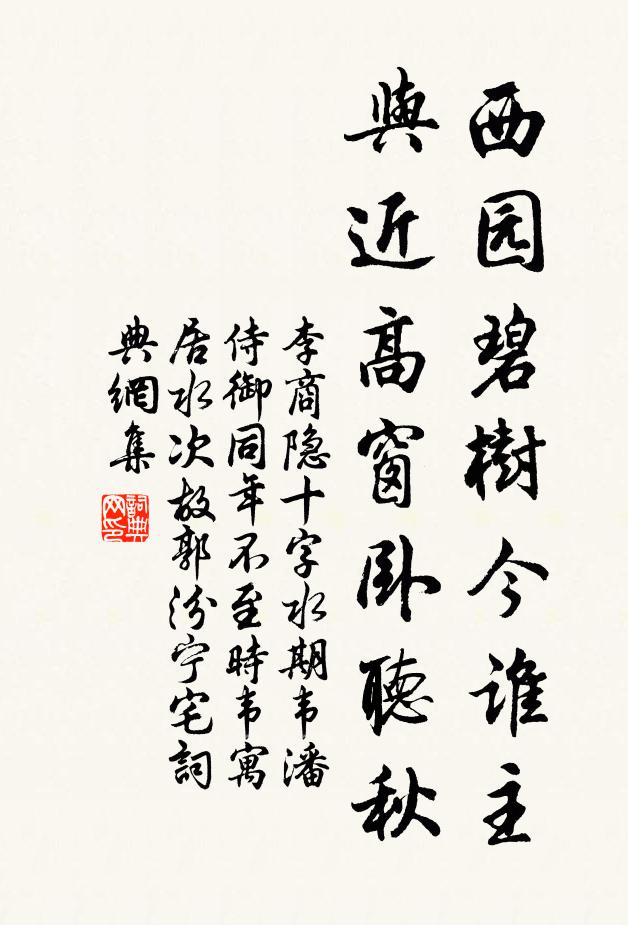 西园碧樹今谁主
與近高窗卧聽秋
李商隐十字水期韦潘
侍御同年不至時韦寓
居水次故郭汾宁宅詞
典網集
詞典
网印